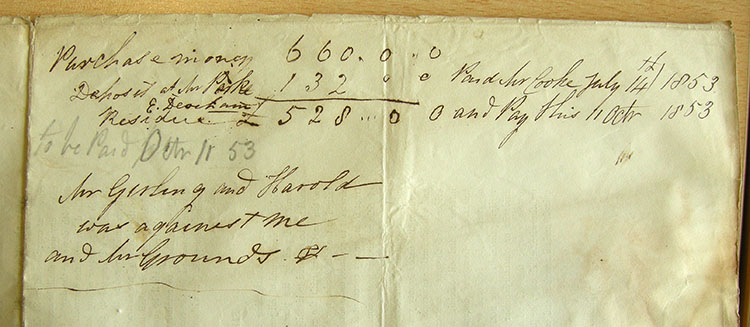 Purchase money 660..0..0
Deposit at Mr Parke 132 0 0
E. Dereham
Residue £ 528...0 0
to be Paid Octr 11 53
Paid Mr Cooke July 14th 1853
and Pay this 11 Octr 1853
Mr Girling and Harold
was against me
and Mr Grounds